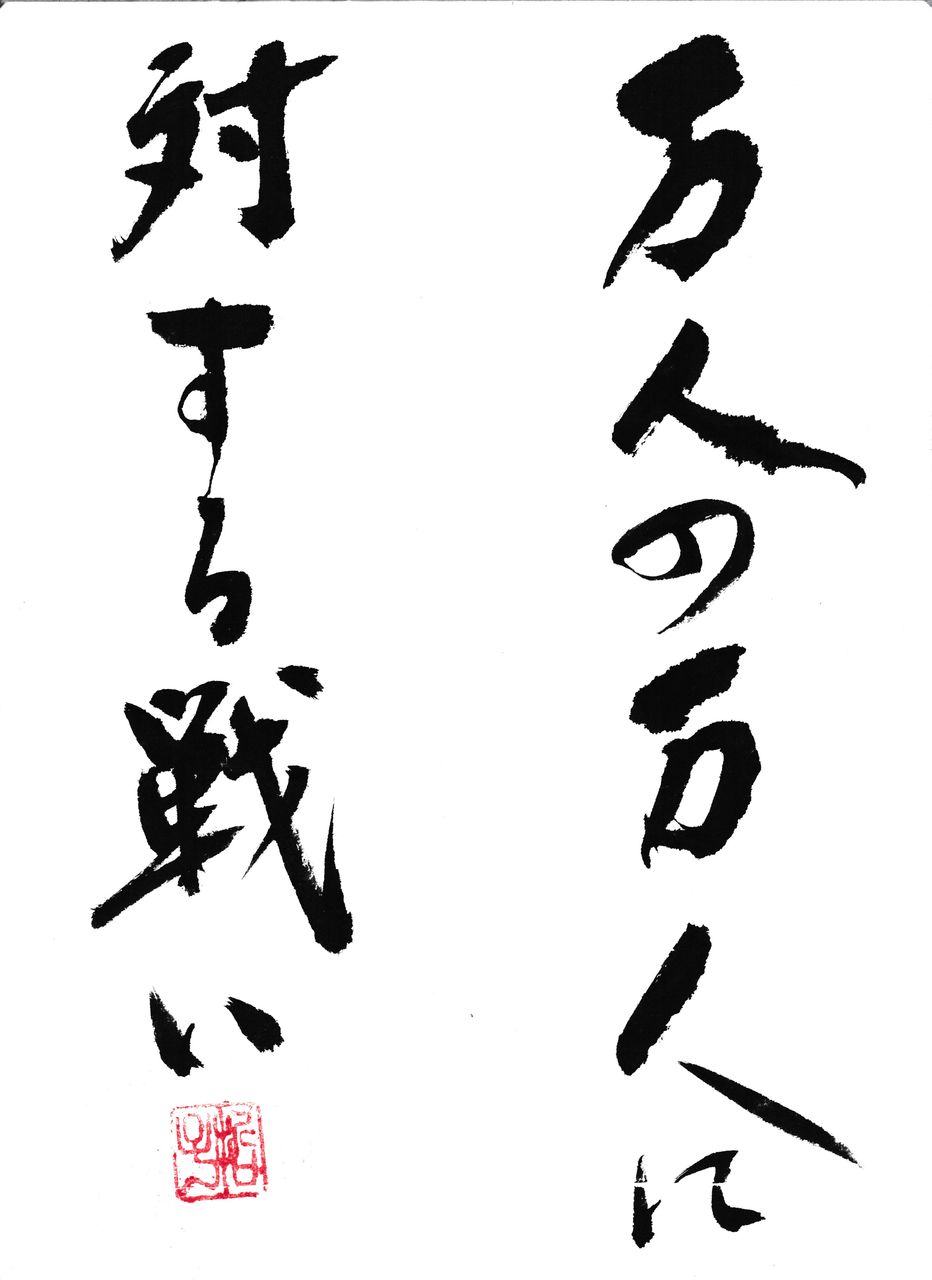 万人の万人に
対する戦い